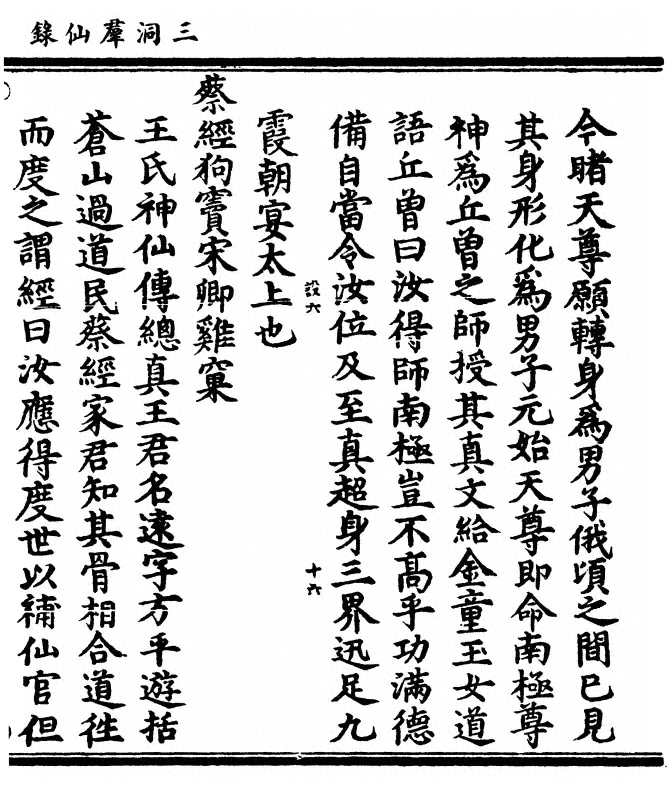 三洞羣仙錄
今睹天尊願轉身爲男子俄頃之間已見
其身形化爲男子元始天尊即命南極尊
神爲丘曾之師授其真文給金童玉女道
語丘曾曰汝得師南極豈不高乎功滿德
備自當令汝位及至真超身三界迅足九
設六
十六
霞朝宴太上也
蔡經狗竇宋卿雞窠
王氏神仙傳總真王君名遠字方平遊括
蒼山過道民蔡經家君知其骨相合道徃
而度之謂經曰汝應得度世以補仙官但